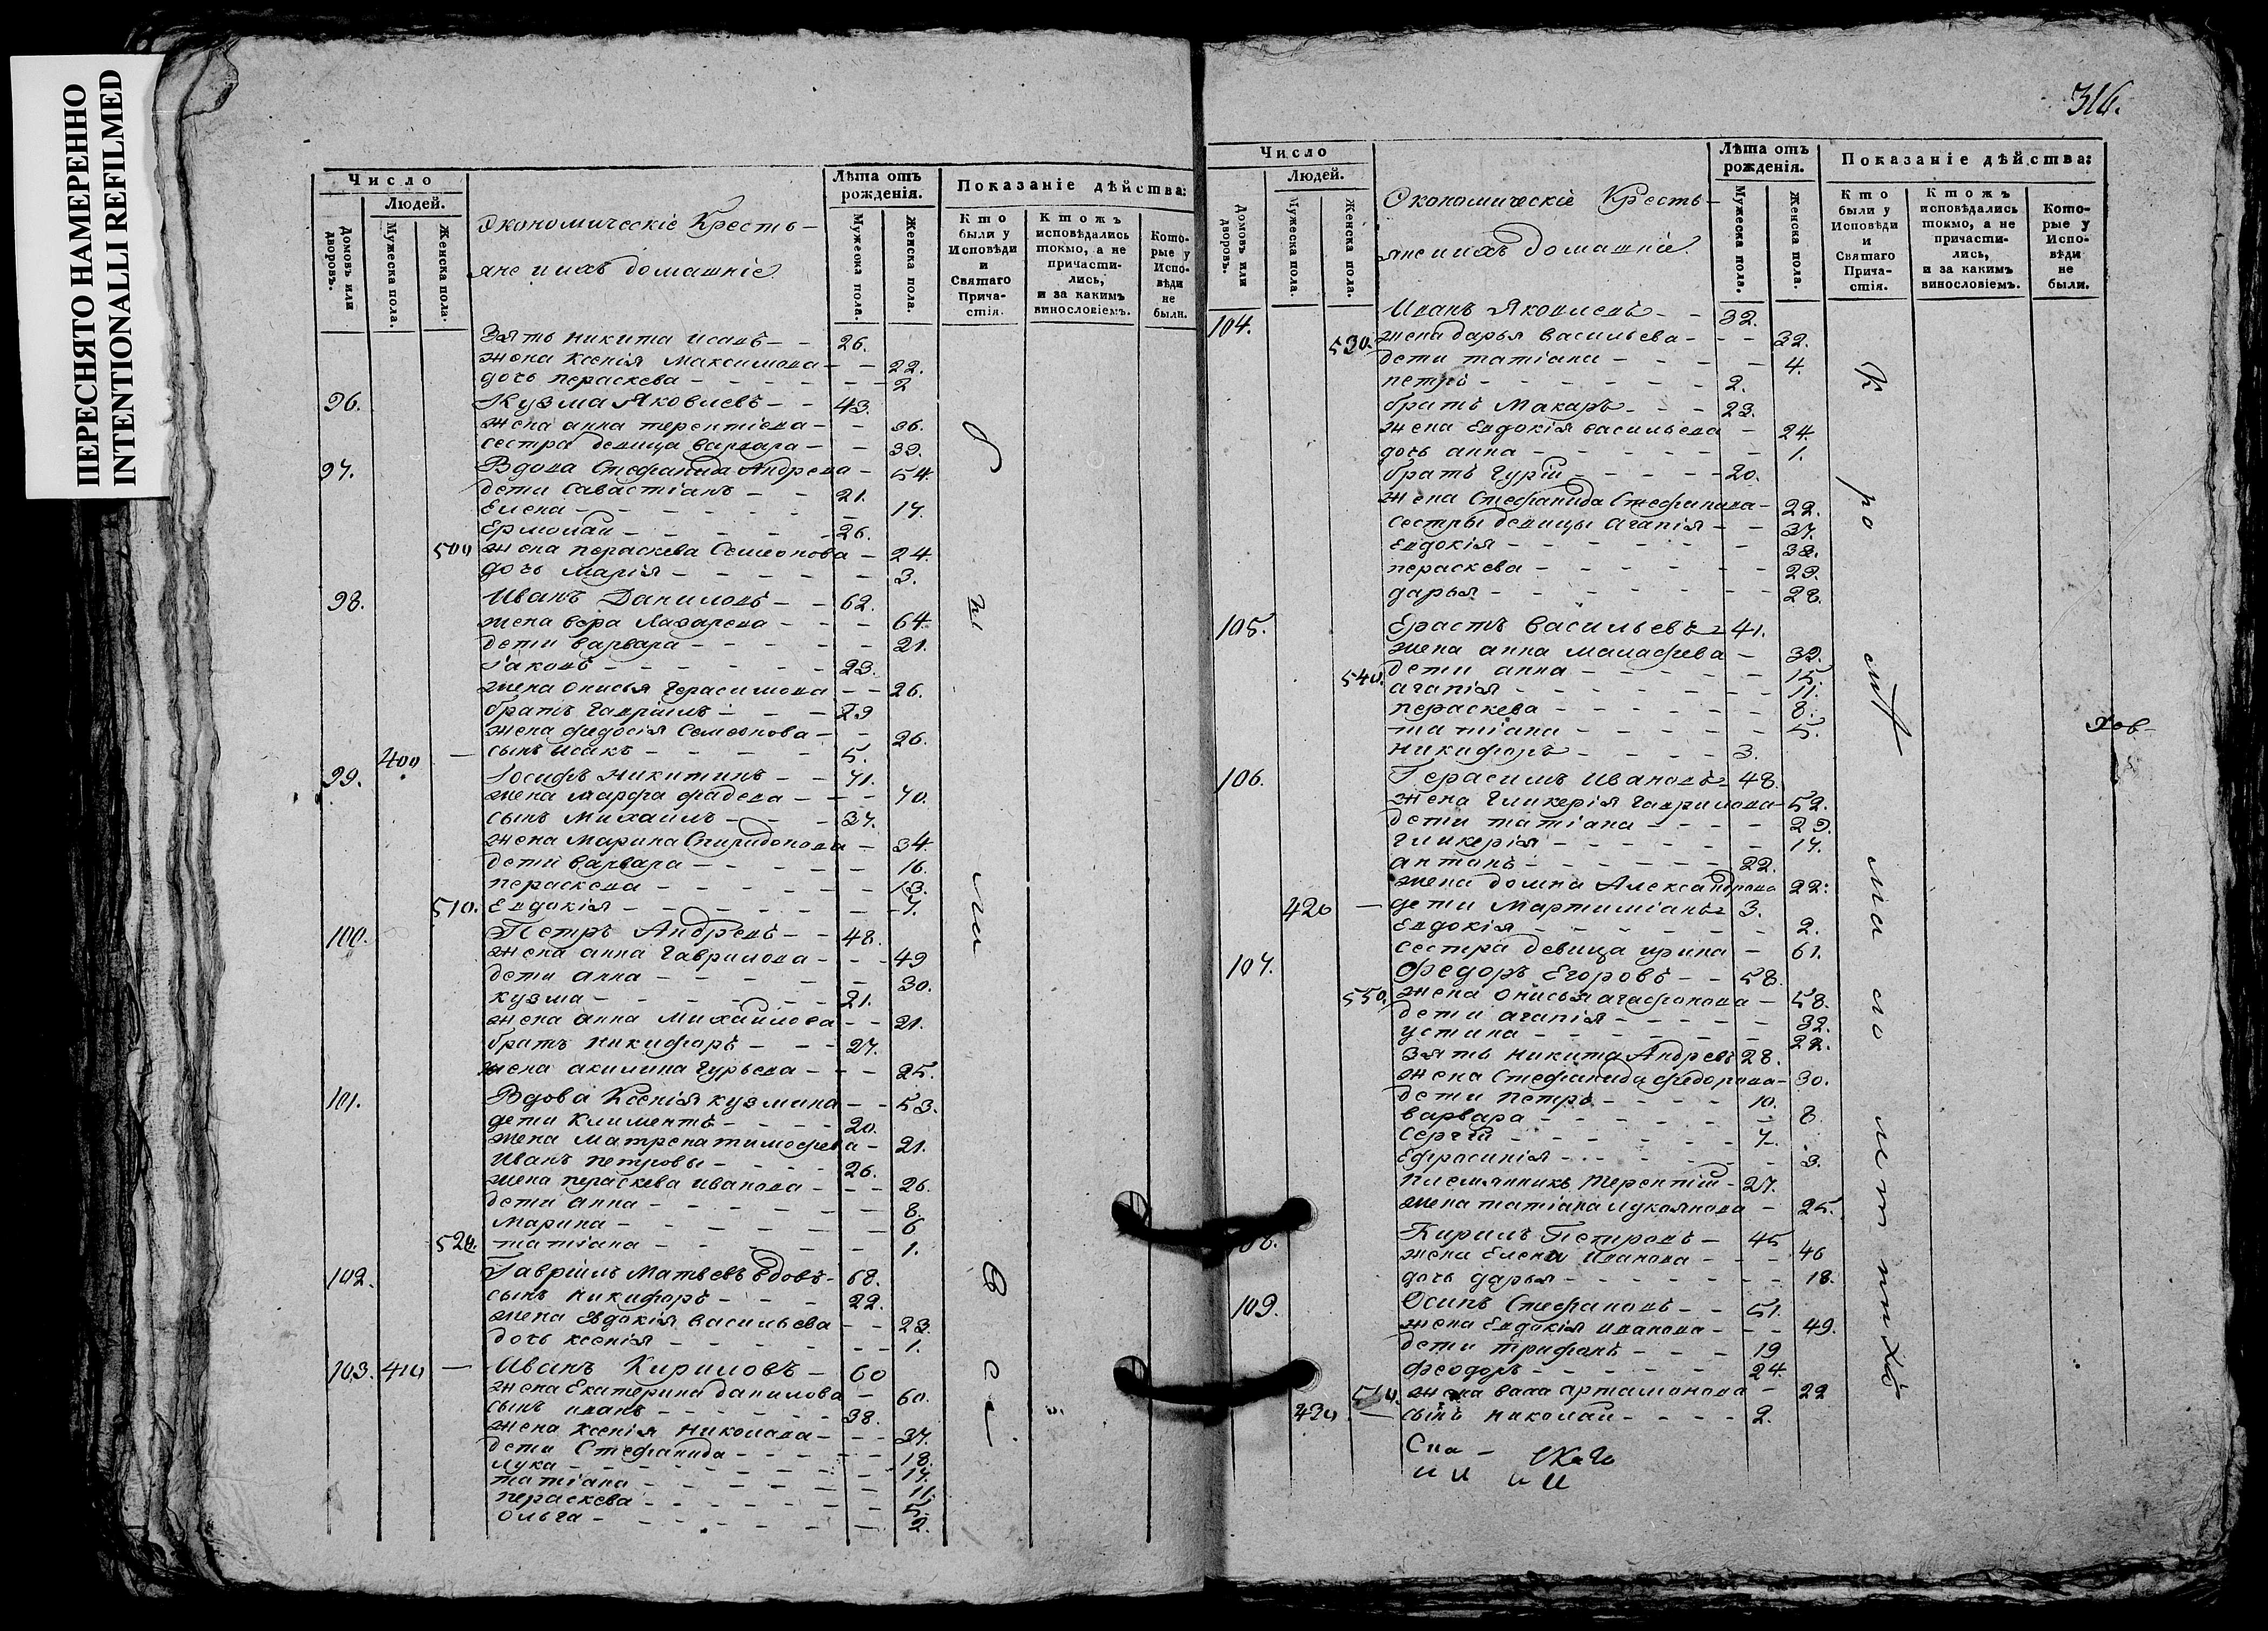 ПЕРЕСНЯТО НАМЕРЕННО
INTENTIONALLI REFILMED
Число
Людей.
Домовъ или дворовъ.
Мужеска пола.
Женска пола.
Экономическіе Кресть-
яне и ихъ домашніе
Лѣта отъ рожденія.
Мужеска пола.
Женска пола.
Показаніе дѣйства:
Кто были у Исповѣди и Святаго Прича-стія.
Ктожъ исповѣдались токмо, а не причасти-лись, и за какимъ винословіемъ.
Кото-рые у Испо-вѣди не были.
Зять никита исаевъ - - 26.
жена Ксенія Максимова - - 22.
дочь пераскева - - 2
96. Кузма Яковлевъ - - 43.
жена анна терентіева - - 36.
сестра девица варвара - - 39.
97. Вдова Стефанида Андреева - 54.
дети Савастіанъ - - 21.
Елена - - 17.
Ермолаи - - 26.
500 жена пераскева Семіонова - 24.
дочь Марія - - 3.
98. Иванъ Даниловъ - - 62.
жена вера Лазарева - - 64
дети варвара - - 21.
Іаковъ - - 23.
жена онисья Герасимова - - 26.
братъ Гавріилъ - - 29
жена федосія Семіонова - - 26.
400 — сынъ исакъ - - 5.
99. Іосифъ никитинъ - - 71.
жена марфа фадеева - - 70.
сынъ Михаилъ - - 37.
жена Марина Спиридонова - 34.
дети варвара - - 16.
пераскева - - 13.
510. Евдокія - - 7.
100. Петръ Андреевъ - - 48.
жена анна Гаврилова - - 49
дети анна - - 30.
кузма - - 21.
жена анна Михаилова - - 21.
братъ никифоръ - - 27.
жена акилина Гурьева - - 25.
101. Вдова Ксенія кузмина - - 53.
дети Климентъ - - 20.
жена матрена тимофеева - 21.
Иванъ петровы - - 26.
жена пераскева иванова - - 26.
дети анна - - 8.
Марина - - 6
520. татіана - - 1.
102. Гавріилъ Матвеевъ вдовъ - 68.
сынъ никифоръ - - 22.
жена Евдокія васильева - - 23.
дочь ксенія - - 1.
103. 410 — Иванъ Кириловъ - 60
жена Екатерина данилова - 60.
сынъ иванъ - - 38.
жена ксенія николаева - - 37.
дети Стефанида - - 18.
лука - - 17.
татіана - - 11.
пераскева - - 5.
Ольга - - 2.
316.
Число
Людей.
Домовъ или дворовъ.
Мужеска пола.
Женска пола.
Экономическіе Кресть-
яне и ихъ домашніе
Лѣта отъ рожденія.
Мужеска пола.
Женска пола.
Показаніе дѣйства:
Кто были у Исповѣди и Святаго Прича-стія.
Ктожъ исповѣдались токмо, а не причасти-лись, и за какимъ винословіемъ.
Кото-рые у Испо-вѣди не были.
104. Иванъ Яковлевъ - - 32.
530. жена дарья васильева - - 32.
дети татіана - - 4.
петръ - - 2.
братъ Макаръ - - 23.
жена Евдокія васильева - 24.
дочь анна - - 1.
братъ Гурій - - 20.
жена Стефанида Стефанова - 22.
сестры девицы агапія - - 37.
Евдокія - - 38.
пераскева - - 29.
дарья - - 28.
105. Ерастъ васильевъ - 41.
жена анна малафеева - 39.
540. дети анна - - 15.
агапія - - 11.
пераскева - - 8.
татіана - - 5.
никифоръ - - 3.
106. Герасимъ Ивановъ - 48.
жена гликерія гаврилова - 52.
дети татіана - - 29.
гликерія - - 17.
антонъ - - 22.
жена домна Александрова 22.
420 — дети Мартиміанъ - 3.
Евдокія - - 2.
сестра девица ирина - 61.
107. Федоръ Егоровъ - - 58.
550. жена Онисья агафонова - 58.
дети агапія - - 32.
устина - - 22.
зять никита Андреевъ 28.
жена Стефанида федорова - 30.
дети петръ - - 10.
варвара - - 8.
Сергій - - 7.
Ефросинія - - 3.
племянникъ Терентіи - 27.
жена татіана лукоянова - 25.
108. Кирилъ Петровъ - 45
жена Елена иванова - - 46
дочь дарья - - 18.
109. Осипъ Стефановъ - - 51.
жена Евдокія иванова - - 49.
дети трифонъ - - 19
феодоръ - - 24.
жена васа артамонова - 22
430 — сынъ николаи - - 2.